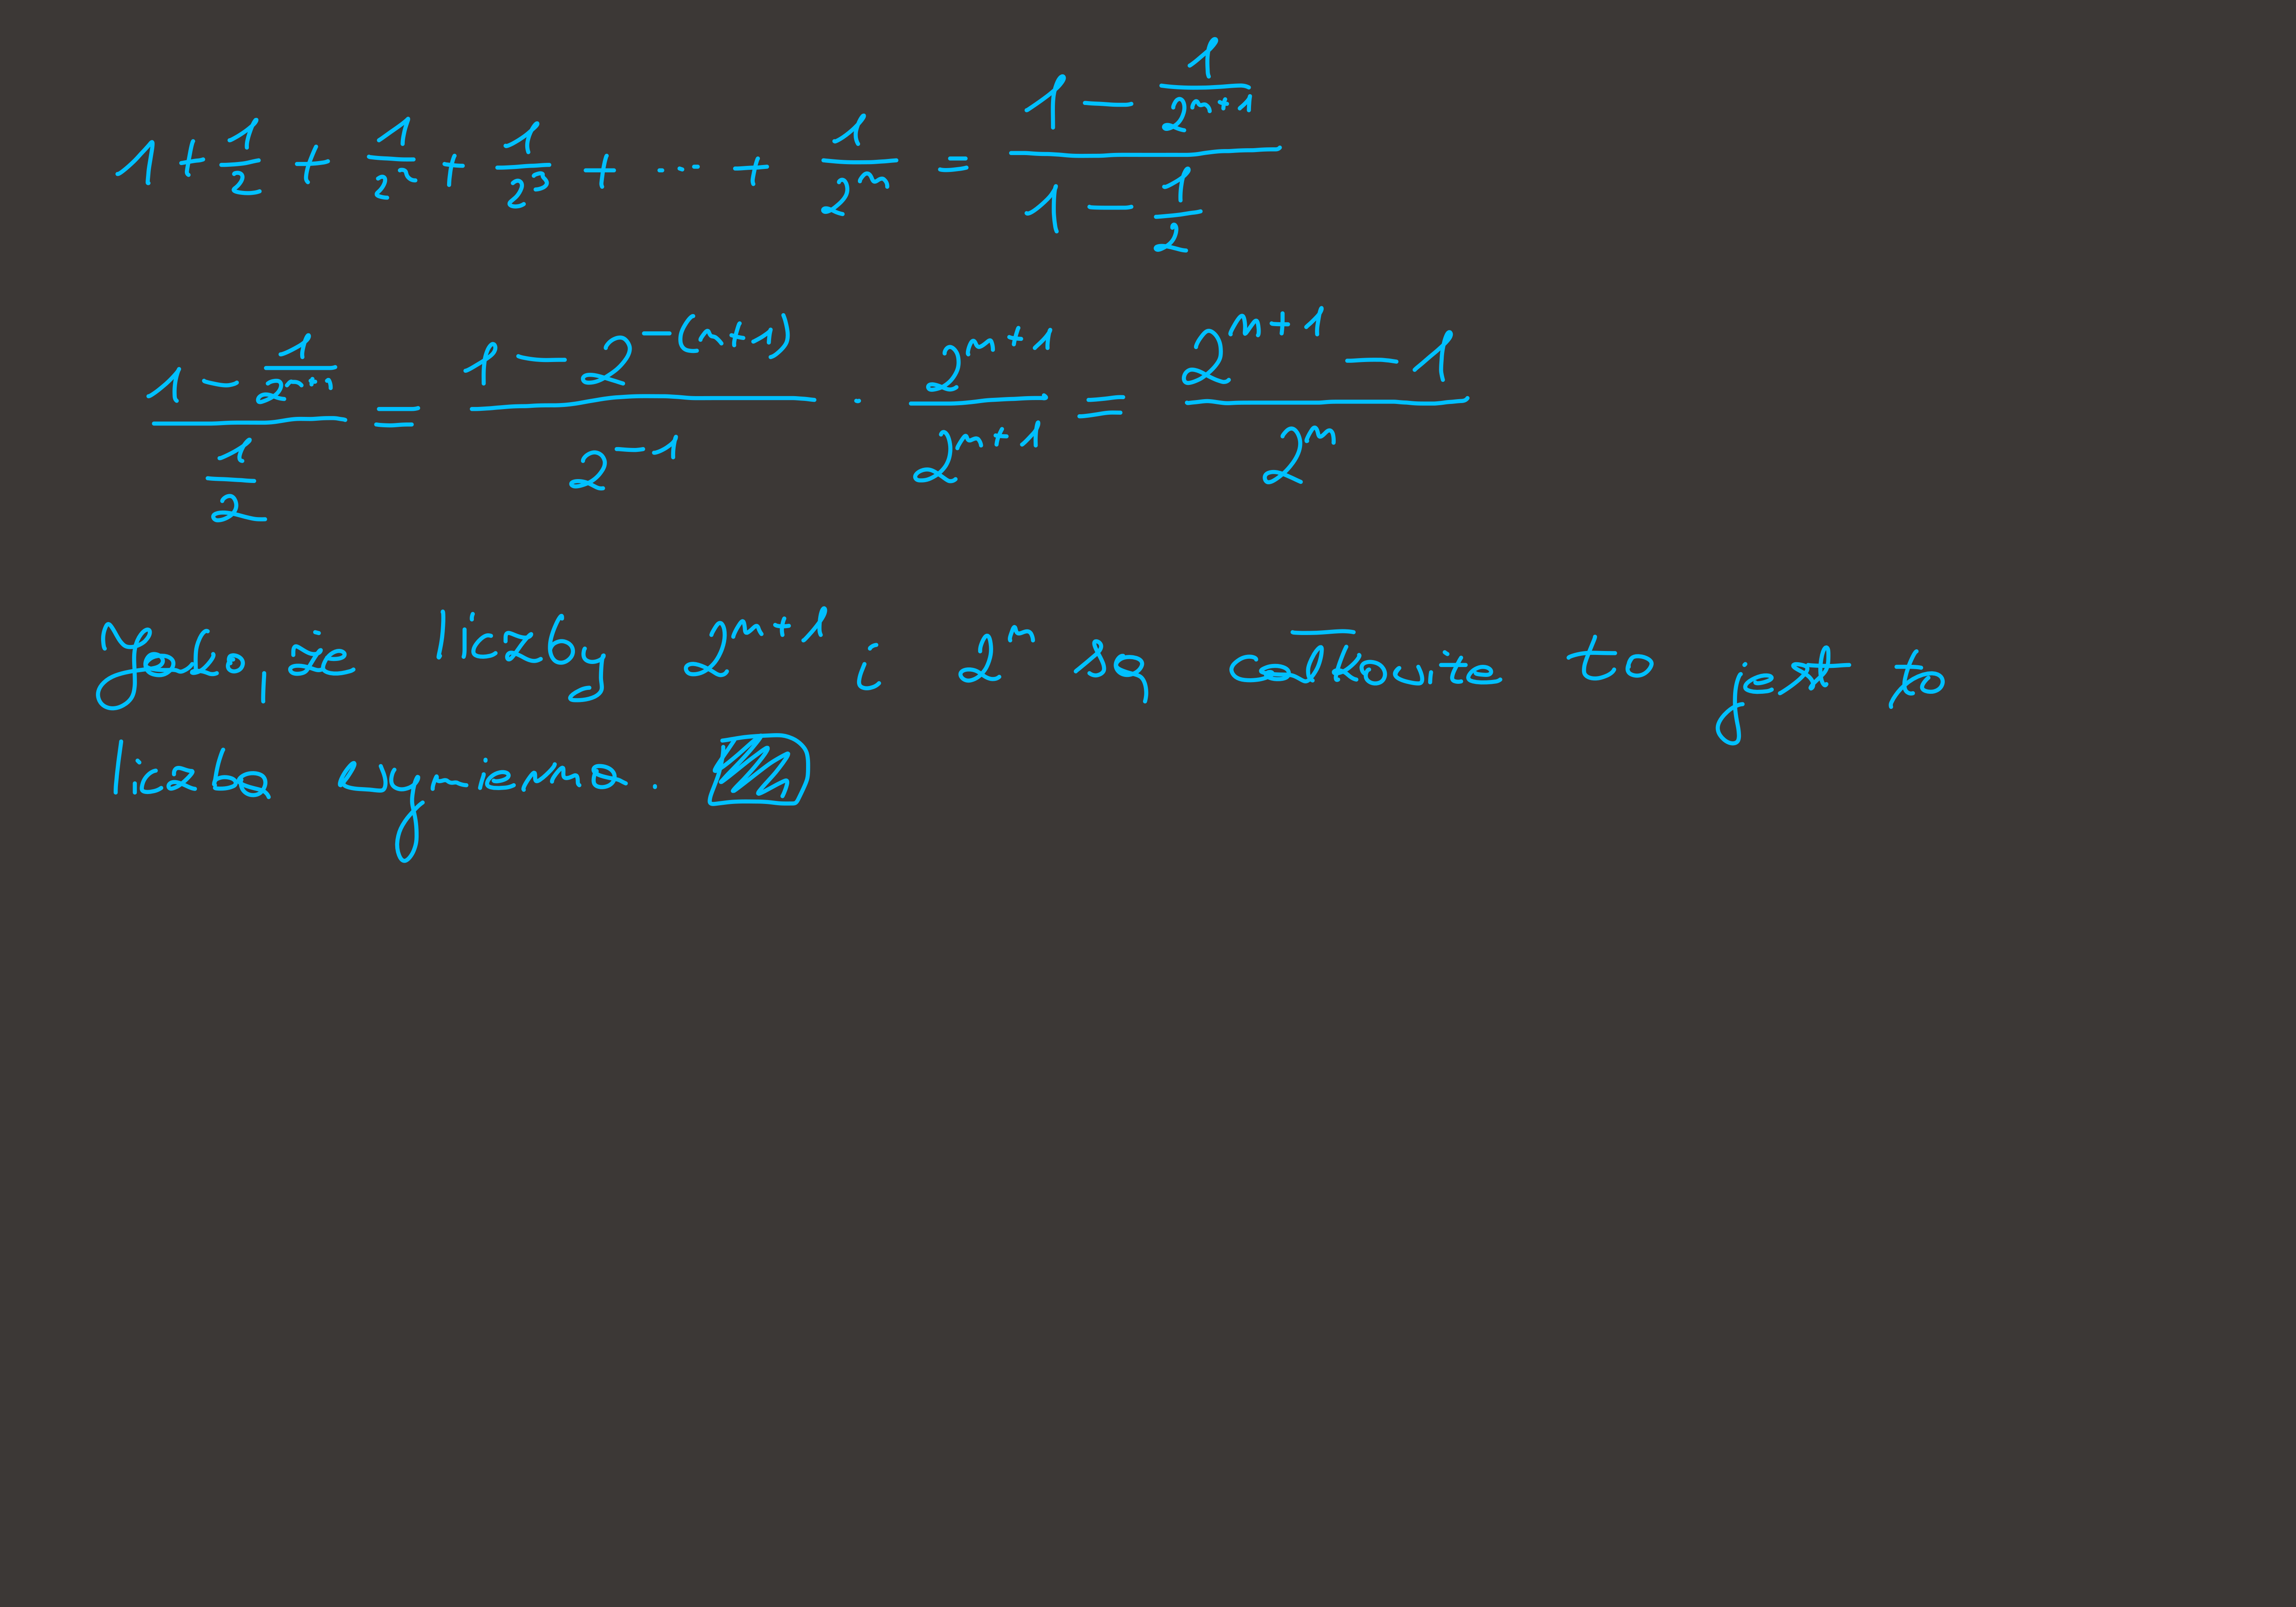 1 + 1/2 + 1/2² + 1/2³ + ... + 1/2ⁿ = (1 - 1/2ⁿ⁺¹) / (1 - 1/2)
(1 - 1/2ⁿ⁺¹) / (1/2) = (1 - 2⁻⁽ⁿ⁺¹⁾) / 2⁻¹ · 2ⁿ⁺¹ / 2ⁿ⁺¹ = (2ⁿ⁺¹ - 1) / 2ⁿ
że liczby 2ⁿ⁺¹ i 2ⁿ są całkowite to jest to
liczba wymierna.